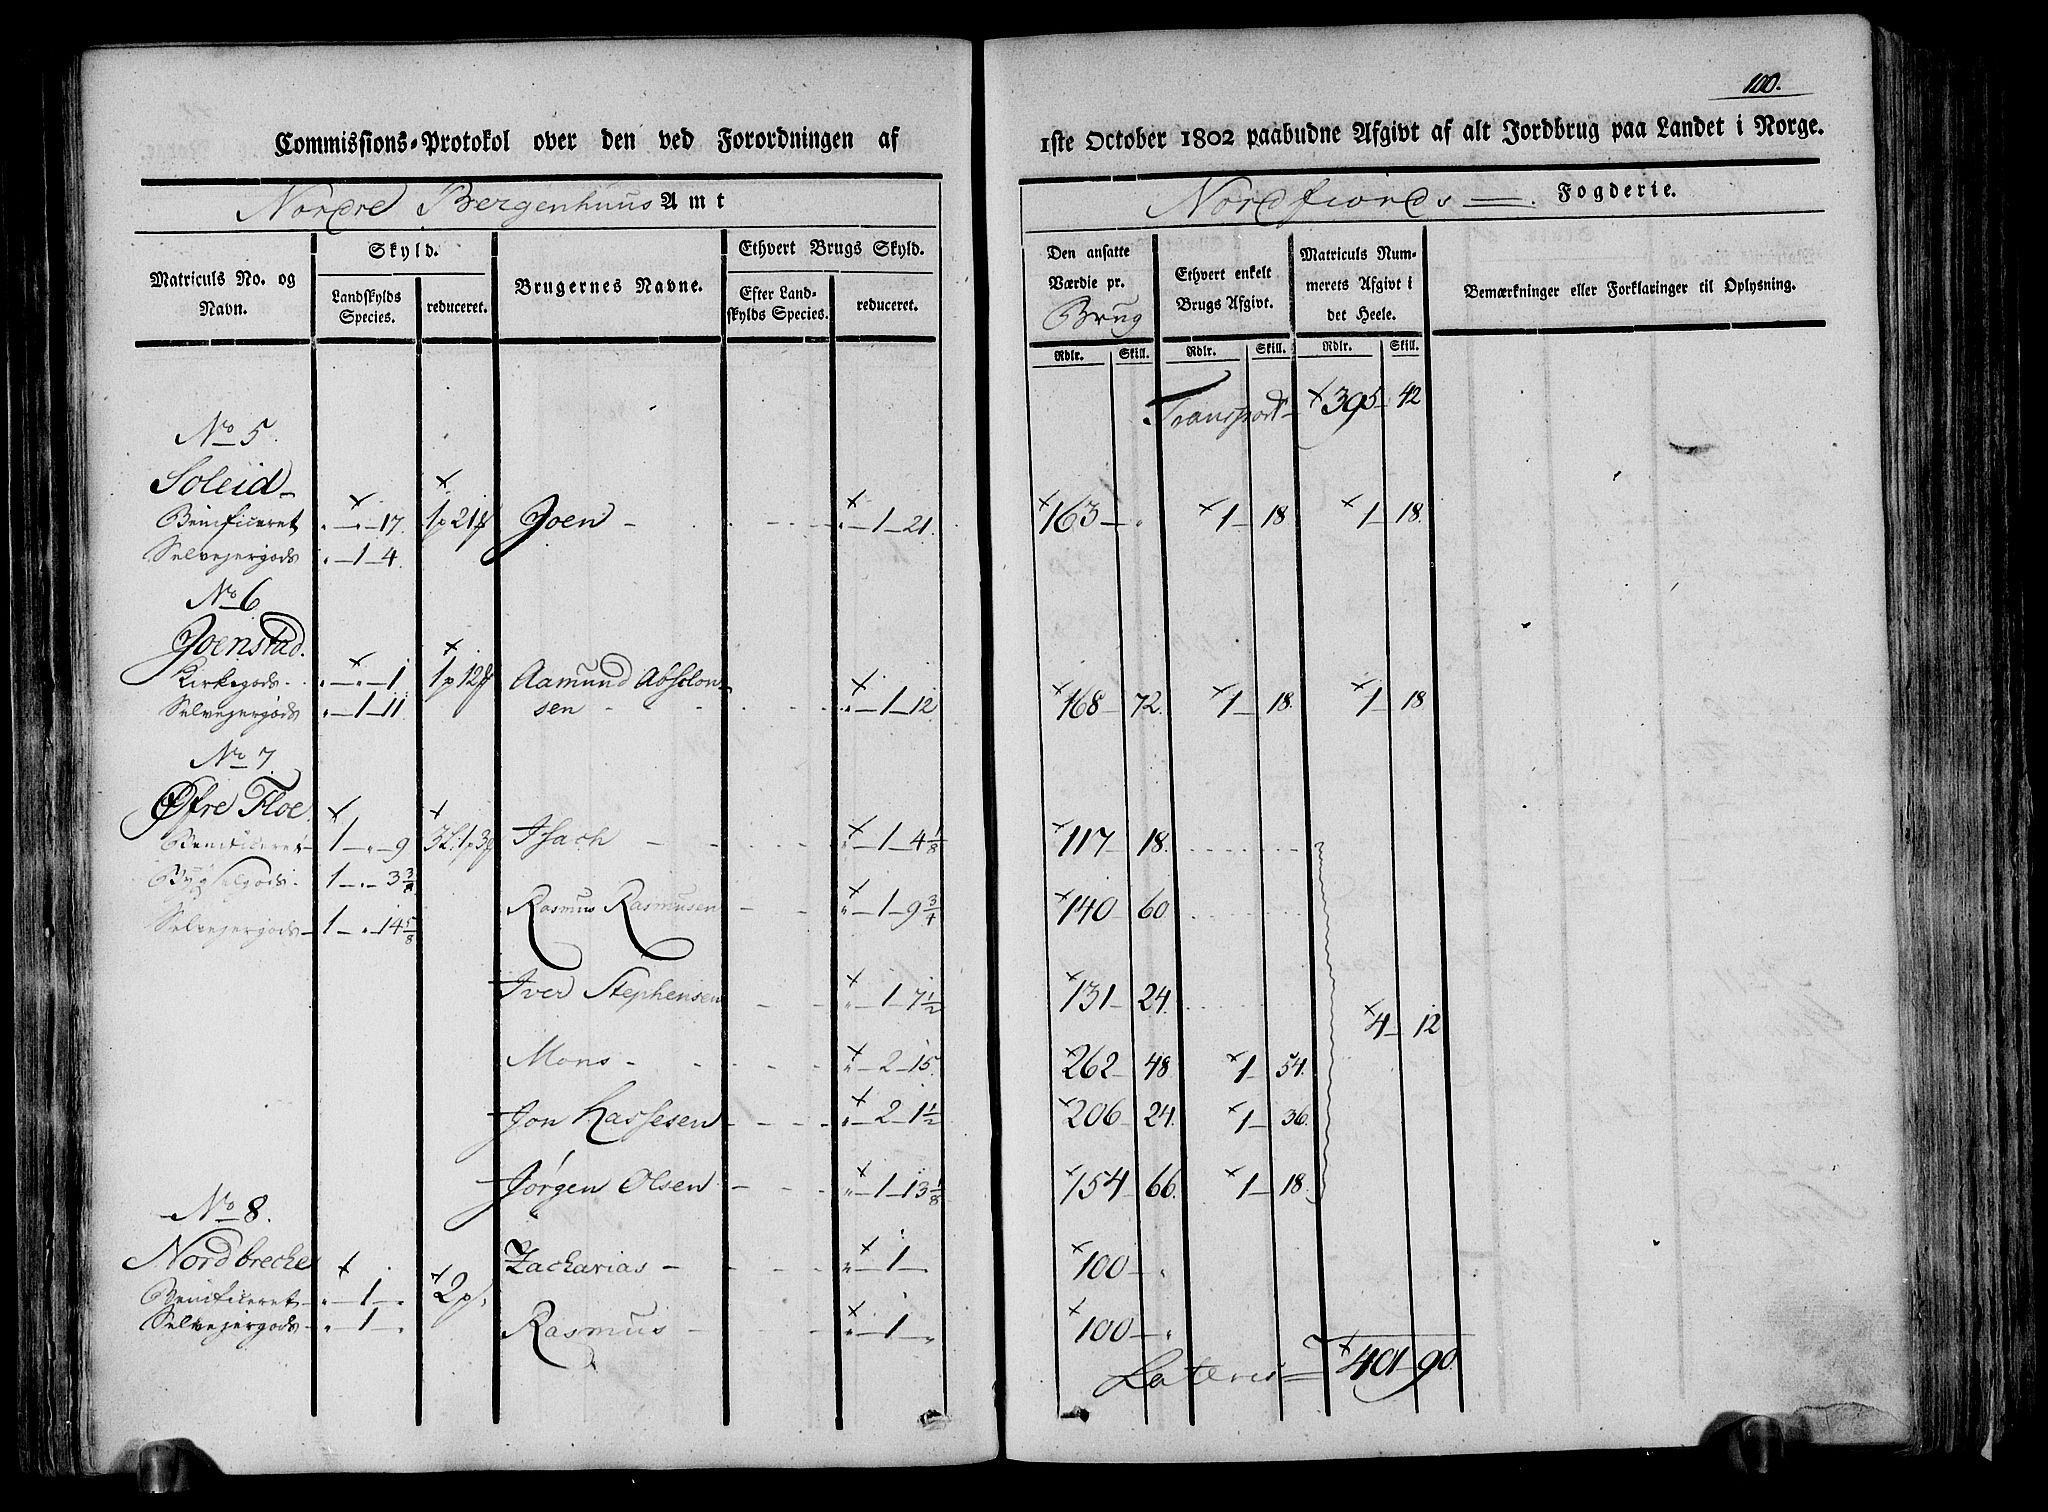 100.
Commissions-Protokol over den ved Forordningen af
1ste October 1802 paabudne Afgivt af alt Jordbrug paa Landet i Norge.
Nordre Bergenhuus Amt
Nordfiords Fogderie.
Matriculs No. og Navn.
Skyld.
Landskylds Species.
reduceret.
Brugernes Navne.
Ethvert Brugs Skyld.
Efter Landskylds Species.
reduceret.
Den ansatte Værdie pr. Brug
Ethvert enkelt Brugs Afgivt.
Matriculs Nummerets Afgivt i det Heele.
Bemærkninger eller Forklaringer til Oplysning.
Rdlr. Skill. Rdlr. Skill. Rdlr. Skill.
Transport 395 42
No 5.
Soleid
Benificeret " " 17. 1p 21 Joen " 1 21. 163 " 1 18 1 18.
Selvejergods " 1 4.
No 6
Joenstad.
Kirkegods " " 1 1p 12 Aamund Absolon-
Selvejergods " 1 11 sen " 1 12 168 72. 1 18. 1 18
No 7.
Øfre Floe
Benificeret 1 " 9 3L. 1p 3 Isach " 1 4 1/8 117 18.
Bygselgods 1 " 3 3/4
Rasmus Rasmusen " 1 9 3/4 140 60
Selvejergods 1 " 14 5/8
Iver Stephensen " 1 7 1/2 131 24.
4 12
Mons " 2 15. 262 48 1 54.
Jon Lassesen " 2 1 1/2 206 24. 1 36.
Jørgen Olsen " 1 13 1/8 154 66. 1 18.
No 8.
Nordbreche Zacharias " 1 100 "
Benificeret " 1 " 2p.
Selvejergods " 1 " Rasmus " 1 " 100 "
Lateris 401 90.